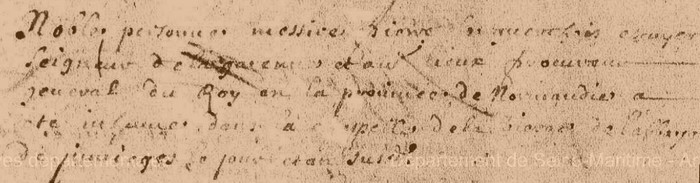 Noble personne messire pierre escuyer
Seigneur de la garenne et au lieux procureur
general du Roy en la province de Normandie a
ete inhumé dans la chapelle de la vierge de
De jumieges le jour et an susdit
Département de Seine-Maritime - A